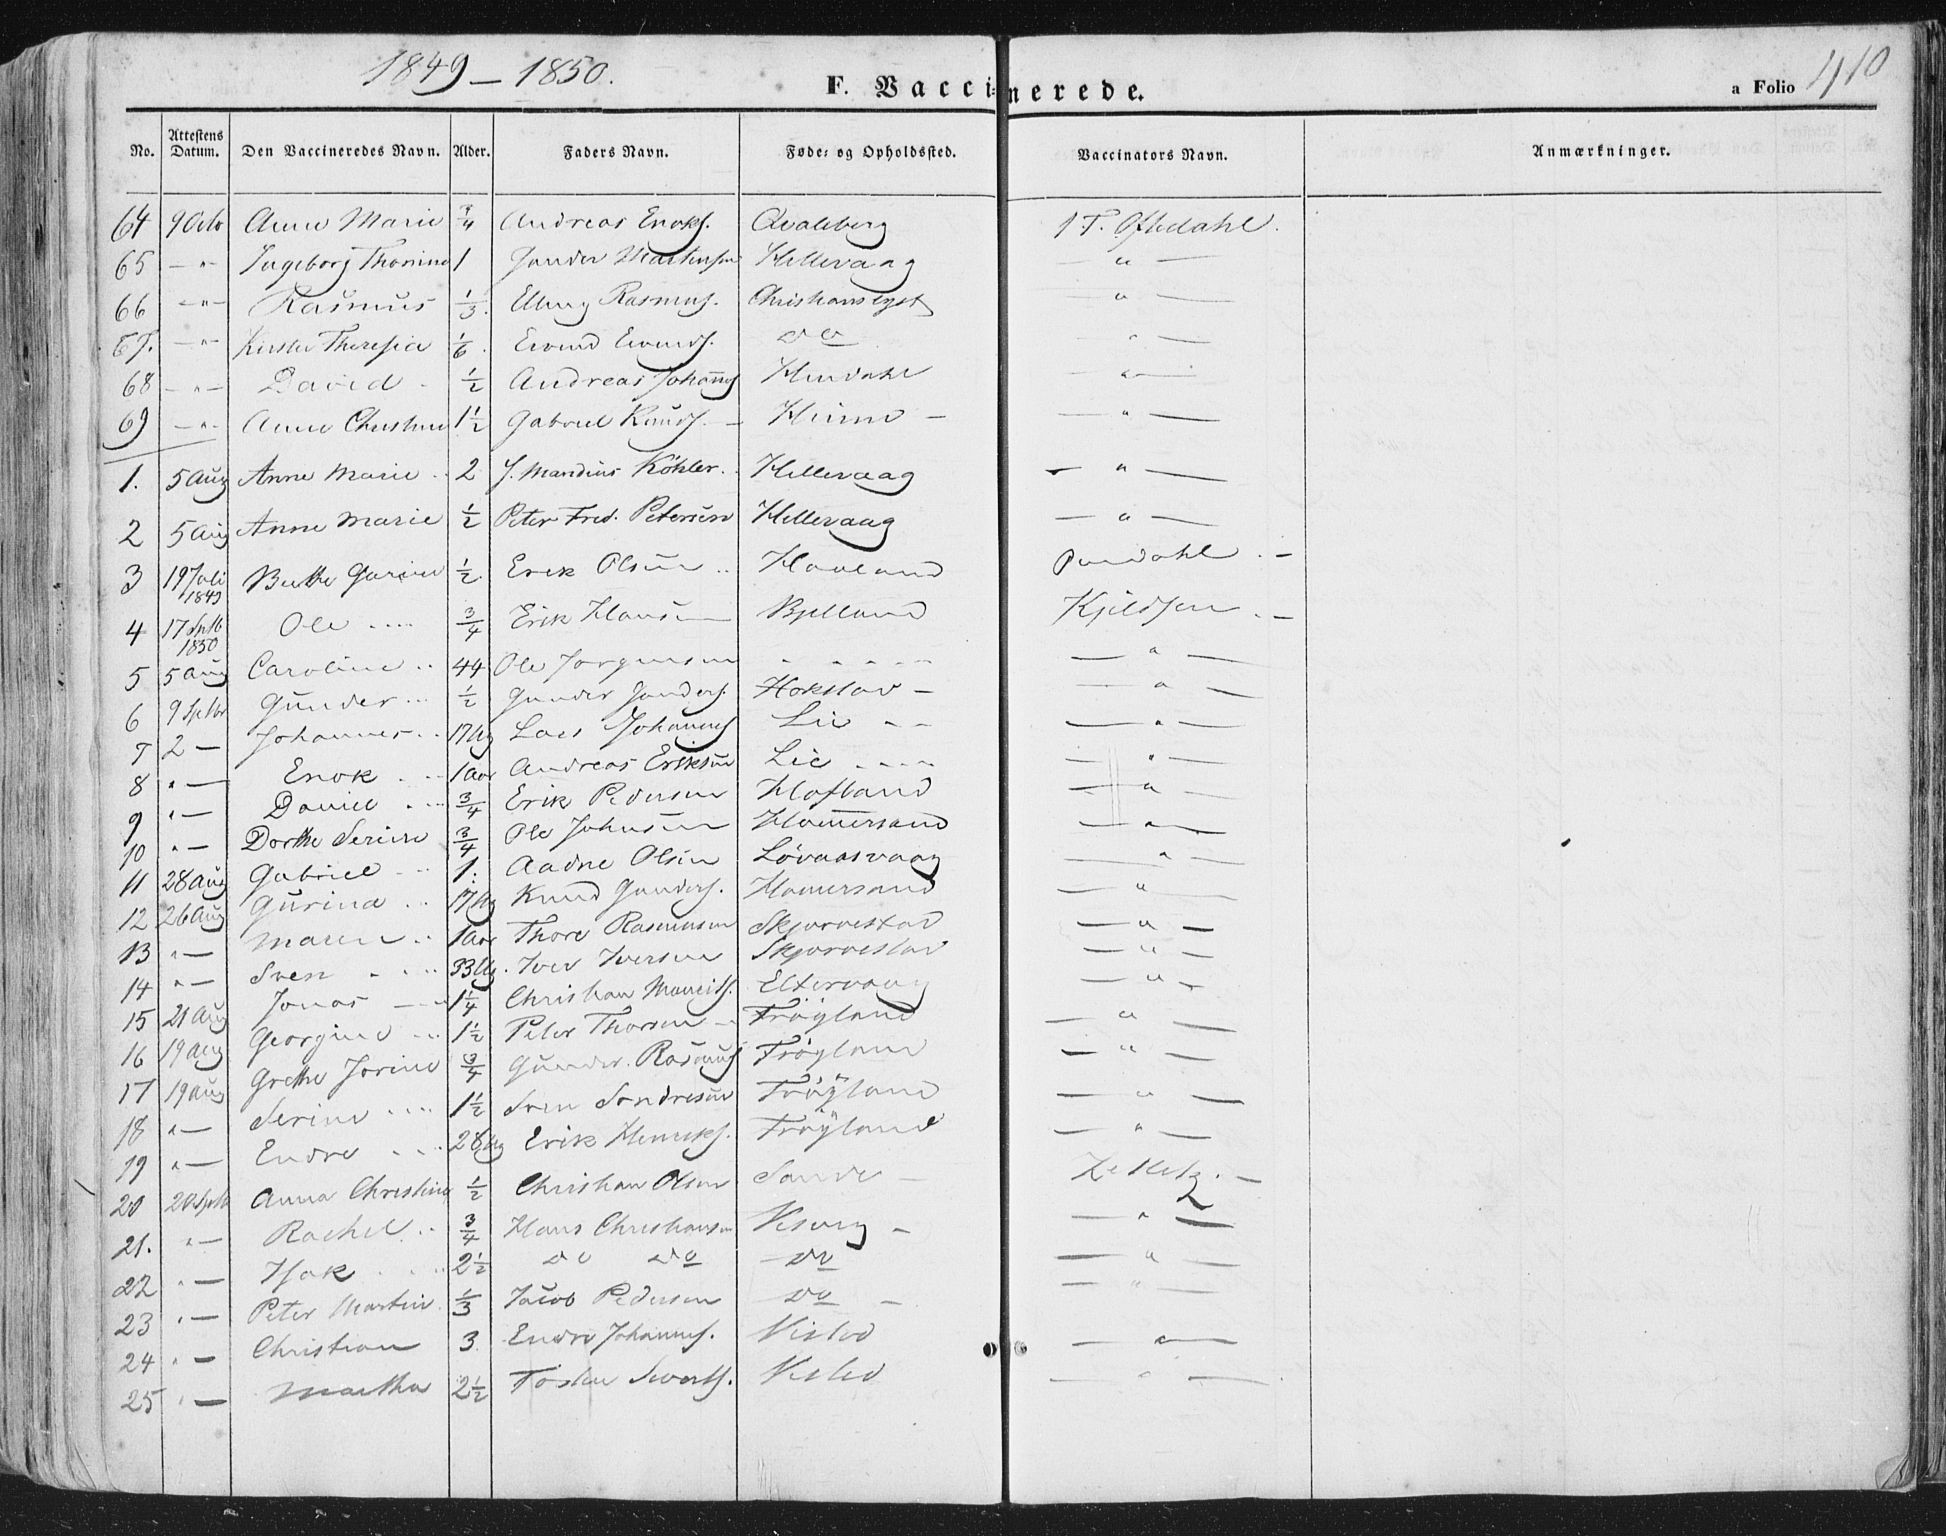 1849 – 1850.
F. Vaccinerede.
a Folio 410
No. Attestens Datum. Den Vaccineredes Navn. Alder. Faders Navn. Føde= og Opholdssted. Vaccinators Navn. Anmærkninger.
64 9 Octb Anne Marie 3/4 Andreas Enoks. Qvaleberg T. Oftedahl.
65 — " — Ingeborg Thorine 1 Gunder Martinsen Hillevaag — " —
66 — " — Rasmus 1/3. Elling Rasmus. Christianslyst — " —
67. — " — Kirstie Theresia 1/6. Eivind Eivinds. do — " —
68 — " — David 1/2 Andreas Johanns — " —
69 — " — Anne Christine 1 1/2 Gabriel Knuds. — — " —
1. 5 Aug Anne Marie .. 2 J. Mandius Köhler. Hillevaag — " —
2 5 Aug Anne Marie 1/2 Peter Fred. Petersen Hillevaag — " —
3 19 Juli 1849 Berthe Gurine 1/2 Erik Olsen .. Haaland
4 17 Sptb 1850 Ole .... 3/4 Erik Hansen Bjelland Kjeldsen . —
5 5 Aug Caroline .. 44 Ole Jørgensen - - - - - — " —
6 9 Sptbr Gunder ... 1/2 Gunder Gunders. — — " —
7 2 — Johannes .. 17 Ug Lars Johannes Lie - - — " —
8 " — Enok . .. 1 Aar Andreas Eriksen Lie - - - - — " —
9 " — Daniel . .. 3/4 Erik Pedersen Hafland — " —
10 " — Dorthe Serine 3/4 Ole Johnsen Hamersand — " —
11 28 Aug Gabriel .. 1. Aadne Olsen Løvaasvaag — " —
12 26 Aug Gurina .. 17 Ug Knud Gunders. Hamersand — " —
13 " — Maren .. 1 Aar Thore Rasmussen Skjørvestad — " —
14 " — Sven . ... 33 Ug. Iver Iversen Skjørvestad — " —
15 21 Aug Jonas — — 1 1/4 Christian Eltervaag — " —
16 19 Aug Georgine .. 1 1/2 Peter Thorsen — Frøyland — " —
17 19 Aug Grethe Jorine 3/4 Gunder Rasmus Frøyland — " —
18 " — Serine .... 1 1/2 Sven Sondresen Frøyland — " —
19 " — Endre ... 28 Ug Erik Henriks. Frøyland — " —
20 20 Sptb Anna Christine 1/2 Christian Olsen Sande — Zetlitz. —
21. " — Rachel .. 3/4 Hans Christiansen — — " —
22 " — Isak . .. 2 1/2 do do do — " —
23 " — Peter Martin. 1/3 Jacob Pedersen do — — " —
24 " — Christian 3. Endre Johannes. — " —
25 " — Martha 2 1/2 — " —